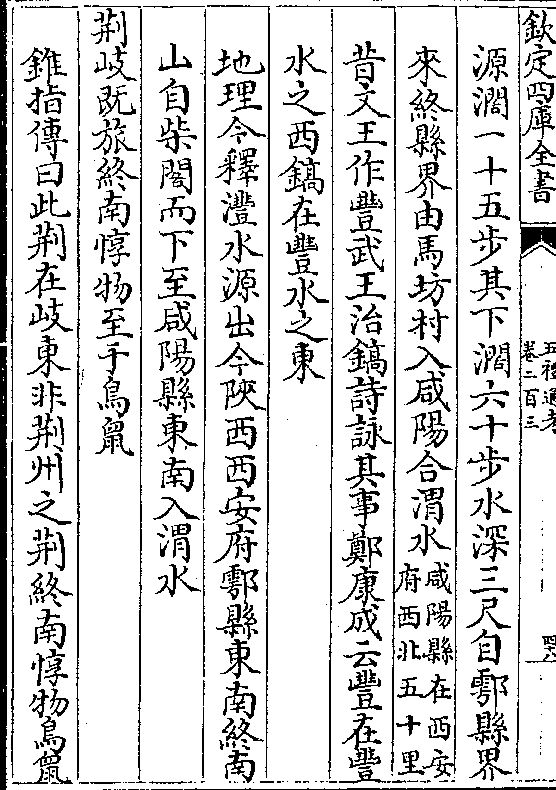 欽定四庫全書
五禮通考
卷二百三
源濶一十五步其下濶六十步水深三尺自鄠縣界
來終縣界由馬坊村入咸陽合渭水咸陽縣在西安府西北五十里
昔文王作豐武王治鎬詩詠其事鄭康成云豐在豐
水之西鎬在豐水之東
地理今釋灃水源出今陜西西安府鄠縣東南終南
山自柴閣而下至咸陽縣東南入渭水
荆岐既旅終南惇物至于鳥鼠
錐指傳曰此荆在岐東非荆州之荆終南惇物鳥鼠